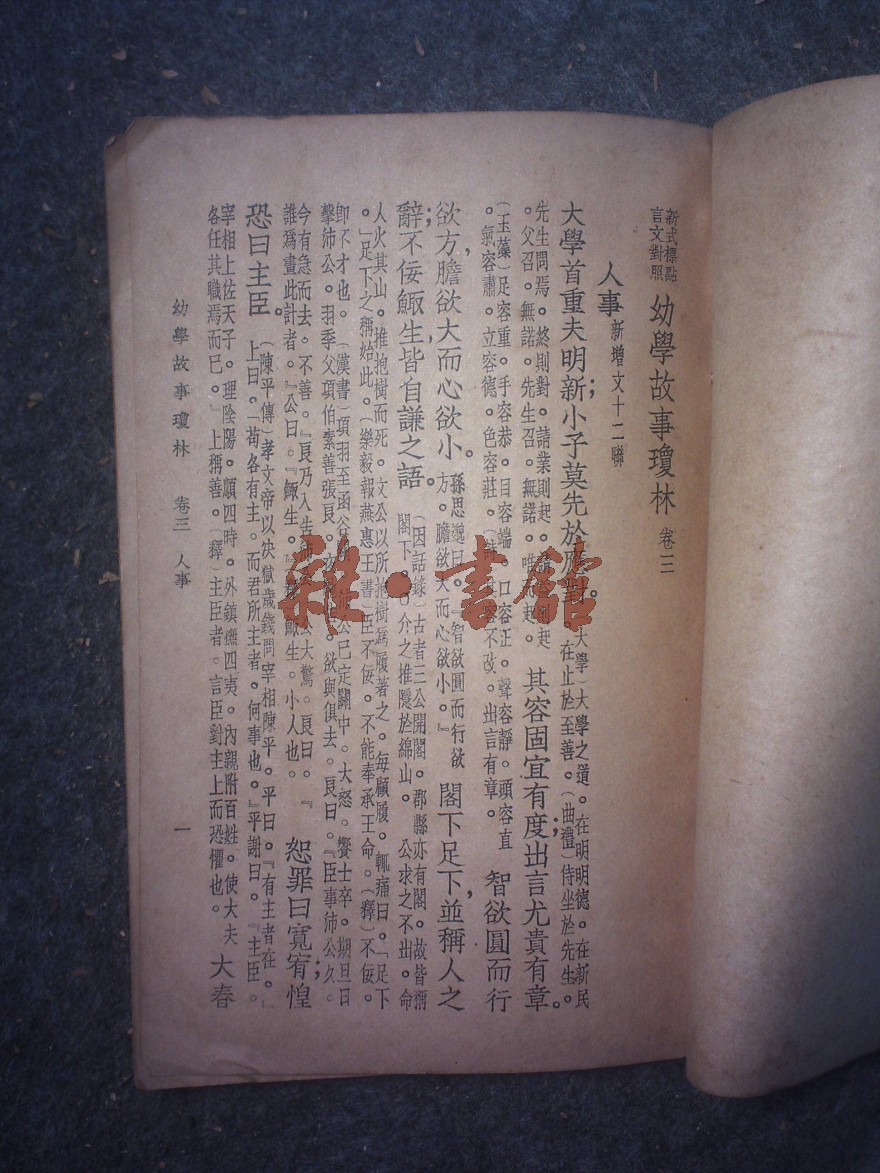 新式標點
言文對照
幼學故事瓊林 卷三
人事 新增文十二聯
大學首重夫明新;小子莫先於應對。
(大學)大學之道。在明明德。在新民
。在止於至善。(曲禮)侍坐於先生。
先生問焉。終則對。請業則起。請益則起
。父召。無諾。先生召。無諾。唯而起。
其容固宜有度;出言尤貴有章。
(玉藻)足容重。手容恭。目容端。口容正。聲容靜。頭容直
。氣容肅。立容德。色容莊。容不改。出言有章。
智欲圓而行
欲方,膽欲大而心欲小。
孫思邈曰。『智欲圓而行欲
方。膽欲大而心欲小。』
閣下足下,並稱人之
辭;不佞鯫生,皆自謙之語。
(因話錄)古者三公開閣。郡縣亦有閣。故皆稱
閣下。介之推隱於綿山。公求之不出。命
人火其山。推抱樹而死。文公以所抱樹爲履著之。每顧履。輒痛曰。「足下
。」足下之稱始此。(樂毅報燕惠王書)臣不佞。不能奉承王命。(釋)不佞。
卽不才也。(漢書)項羽至函谷 沛公已定關中。大怒。饗士卒。期旦日
擊沛公。羽季父項伯素善張良。欲與俱去。良曰。『臣事沛公久。
今有急而去。不善。』良乃入告沛公。公大驚。良曰。『
誰爲畫此計者。』公曰。『鯫生。』鯫生。小人也。
恕罪曰寬宥;惶
恐曰主臣。
(陳平傳)孝文帝以決獄歲錢問宰相陳平。平曰。『有主者在。』
上曰。『苟各有主。而君所主者。何事也。』平謝曰。『主臣。
宰相上佐天子。理陰陽。順四時。外鎮撫四夷。內親附百姓。使大夫
各任其職焉而已。』上稱善。(釋)主臣者。言臣對主上而恐懼也。
大春
幼學故事瓊林 卷三 人事 一
雜·書館